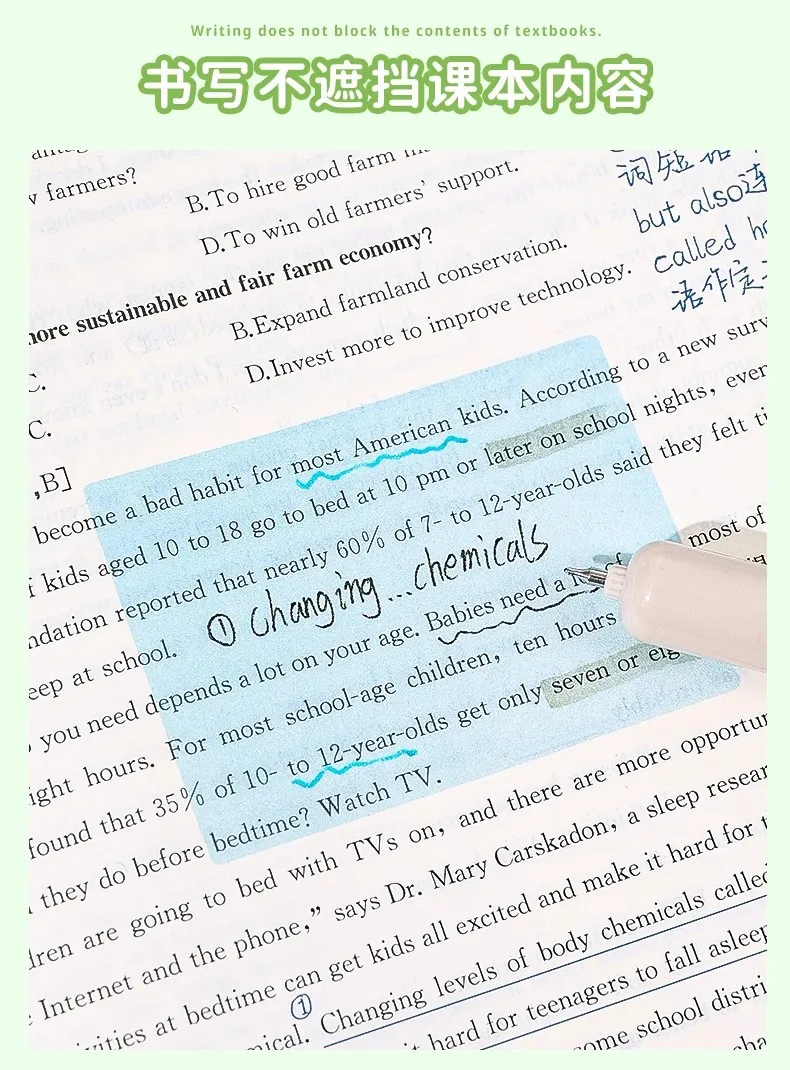 Writing does not block the contents of textbooks.
书写不遮挡课本内容
farmers?
B.To hire good farm
D.To win old farmers' support.
more sustainable and fair farm economy?
B.Expand farmland conservation.
D.Invest more to improve technology.
C.
C.
,B]
词短语
but also连
called
语作定
become a bad habit for most American kids. According to a new
kids aged 10 to 18 go to bed at 10 pm or later on school nights, even
reported that nearly 60% of 7- to 12-year-olds said they felt
① changing...chemicals
most of
at school.
you need depends a lot on your age. Babies need a
hours. For most school-age children, ten hours
found that 35% of 10- to 12-year-olds get only seven or
they do before bedtime? Watch TV.
are going to bed with TVs on, and there are more
Internet and the phone," says Dr. Mary Carskadon, a sleep
at bedtime can get kids all excited and make it hard for
① Changing levels of body chemicals called
hard for teenagers to fall asleep
some school